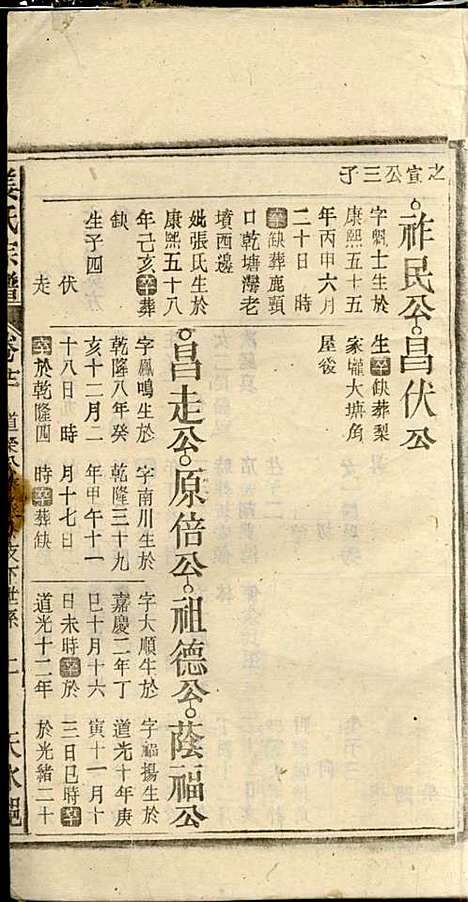 之宣公三子
祚民公
字魁士生於
康熙五十五
年丙申六月
二十日　時
卒缺葬鹿頸
口乾塘灣老
墳西邊
妣張氏生於
康熙五十八
年己亥卒葬
缺
生子四
伏
走
昌伏公
生卒缺葬梨
家壠大塘角
屋後
昌走公
字鳳鳴生於
乾隆八年癸
亥十二月二
十八日　時
卒於乾隆四
原倍公
字南川生於
乾隆三十九
年甲午十一
月十七日
時卒葬缺
祖德公
字大順生於
嘉慶二年丁
巳十月十六
日未時卒於
道光十二年
蔭福公
字福揚生於
道光十年庚
寅十一月十
三日巳時卒
於光緒二十
姜氏宗譜
卷十二
支下世系
二
天水郡